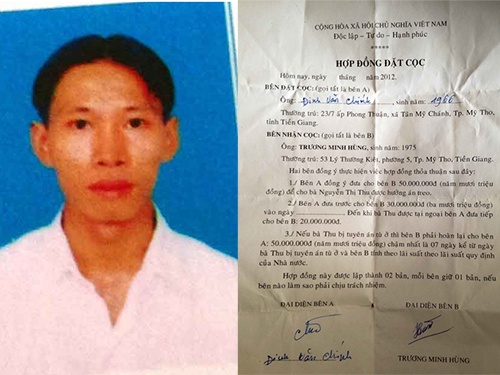 CỘNG HÒA XÃ HỘI CHỦ NGHĨA VIỆT NAM
Độc lập – Tự do – Hạnh phúc
*****
HỢP ĐỒNG ĐẶT CỌC
Hôm nay, ngày tháng năm 2012.
BÊN ĐẶT CỌC: (gọi tắt là bên A)
Ông: Đinh Văn Chính, sinh năm: 1966
Thường trú: 23/7 ấp Phong Thuận, xã Tân Mỹ Chánh, Tp. Mỹ Tho,
tỉnh Tiền Giang.
BÊN NHẬN CỌC: (gọi tắt là bên B)
TRƯƠNG MINH HÙNG, sinh năm: 1975
Thường trú: 53 Lý Thường Kiệt, phường 5, Tp. Mỹ Tho, Tiền Giang.
Hai bên đồng ý thực hiện việc hợp đồng thỏa thuận sau đây:
1./ Bên A đồng ý đưa cho bên B 50.000.000đ (năm mươi triệu
đồng) để cho bà Nguyễn Thị Thu được hưởng án treo.
2./ Bên A đưa trước cho bên B 30.000.000đ (ba mươi triệu đồng)
vào ngày.................... Đến khi bà Thu được tại ngoại bên A đưa tiếp
cho bên B: 20.000.000đ.
3./ Nếu bà Thu bị tuyên án tù ở thì bên B phải hoàn lại cho bên
A: 50.000.000đ (năm mươi triệu đồng) chậm nhất là 07 ngày kể từ ngày
bà Thu bị tuyên án tù ở và bên B tính theo lãi suất theo lãi suất quy định
của Nhà nước.
Hợp đồng này được lập thành 02 bản, mỗi bên giữ 01 bản, nếu
bên nào làm sao phải chịu trách nhiệm.
ĐẠI DIỆN BÊN A ĐẠI DIỆN BÊN B
Đinh Văn Chính TRƯƠNG MINH HÙNG